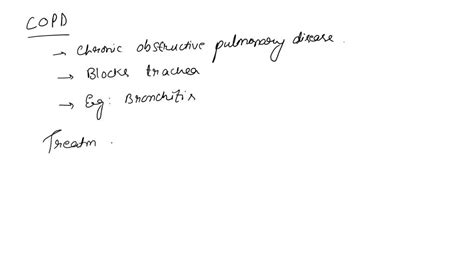 COPD
→ Chronic obstructive pulmonary disease.
→ Blocks trachea
→ Eg: Bronchitis
Treatm .